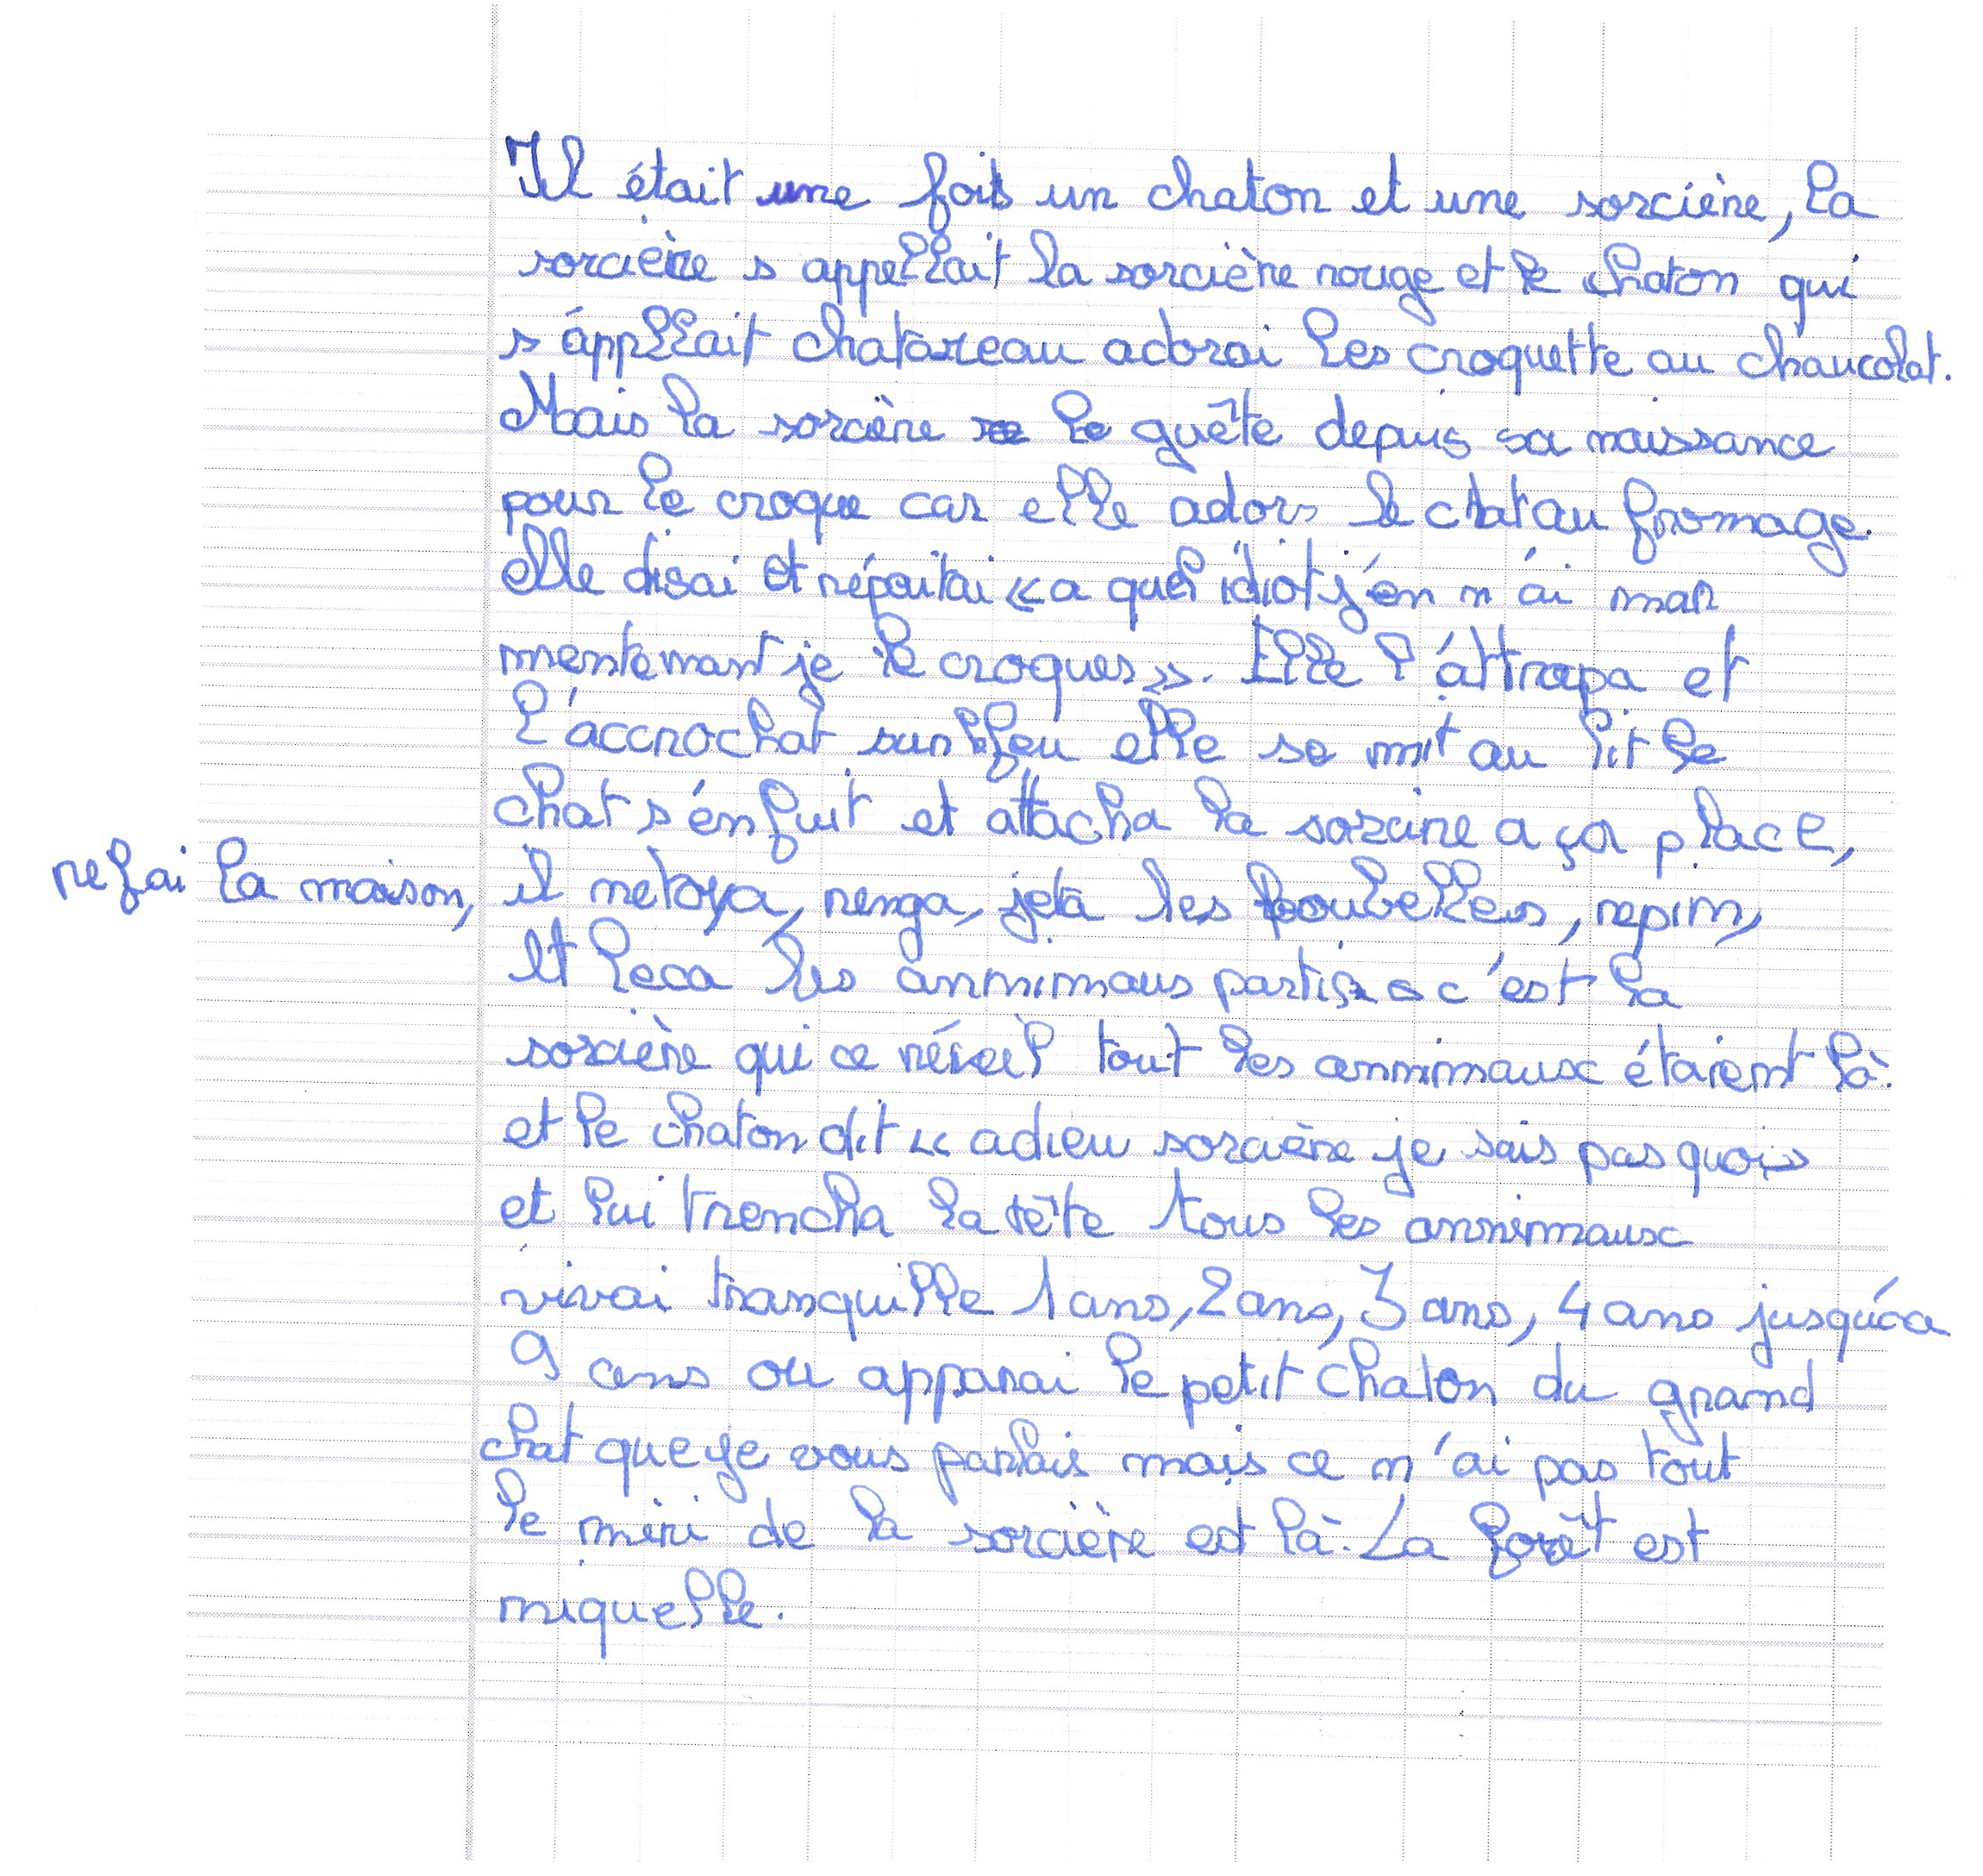 Il était une fois un chaton et une sorcière, la
sorcière s appellait la sorcière rouge et le chaton qui
s'appllait chatareau adorai les croquette au chaucolat.
Mais la sorcière le guête depuis sa naissance
pour le croque car elle adors le chat au fromage.
elle disai et répéitai « a quel idiot j'en n'ai mar
mentemant je le croques ». Elle l'attrapa et
l'accrochat sur le feu elle se mit au lit le
chat s'enfuit et attacha la sorcine a ça place,
refai la maison, il netoya, renga, jeta les poubelles, repim,
et leca les annimaus partir c'est la
sorcière qui ce réveil tout les annimaux étaient là.
et le chaton dit « adieu sorcière je sais pas quois
et lui trencha la tête tous les annimaux
vivai tranquille 1 ans, 2 ans, 3 ans, 4 ans jusqu'àa
9 ans ou apparai le petit chaton du grand
chat que je vous parlais mais ce n'ai pas tout
le miri de la sorcière est là. La forêt est
miquelle.